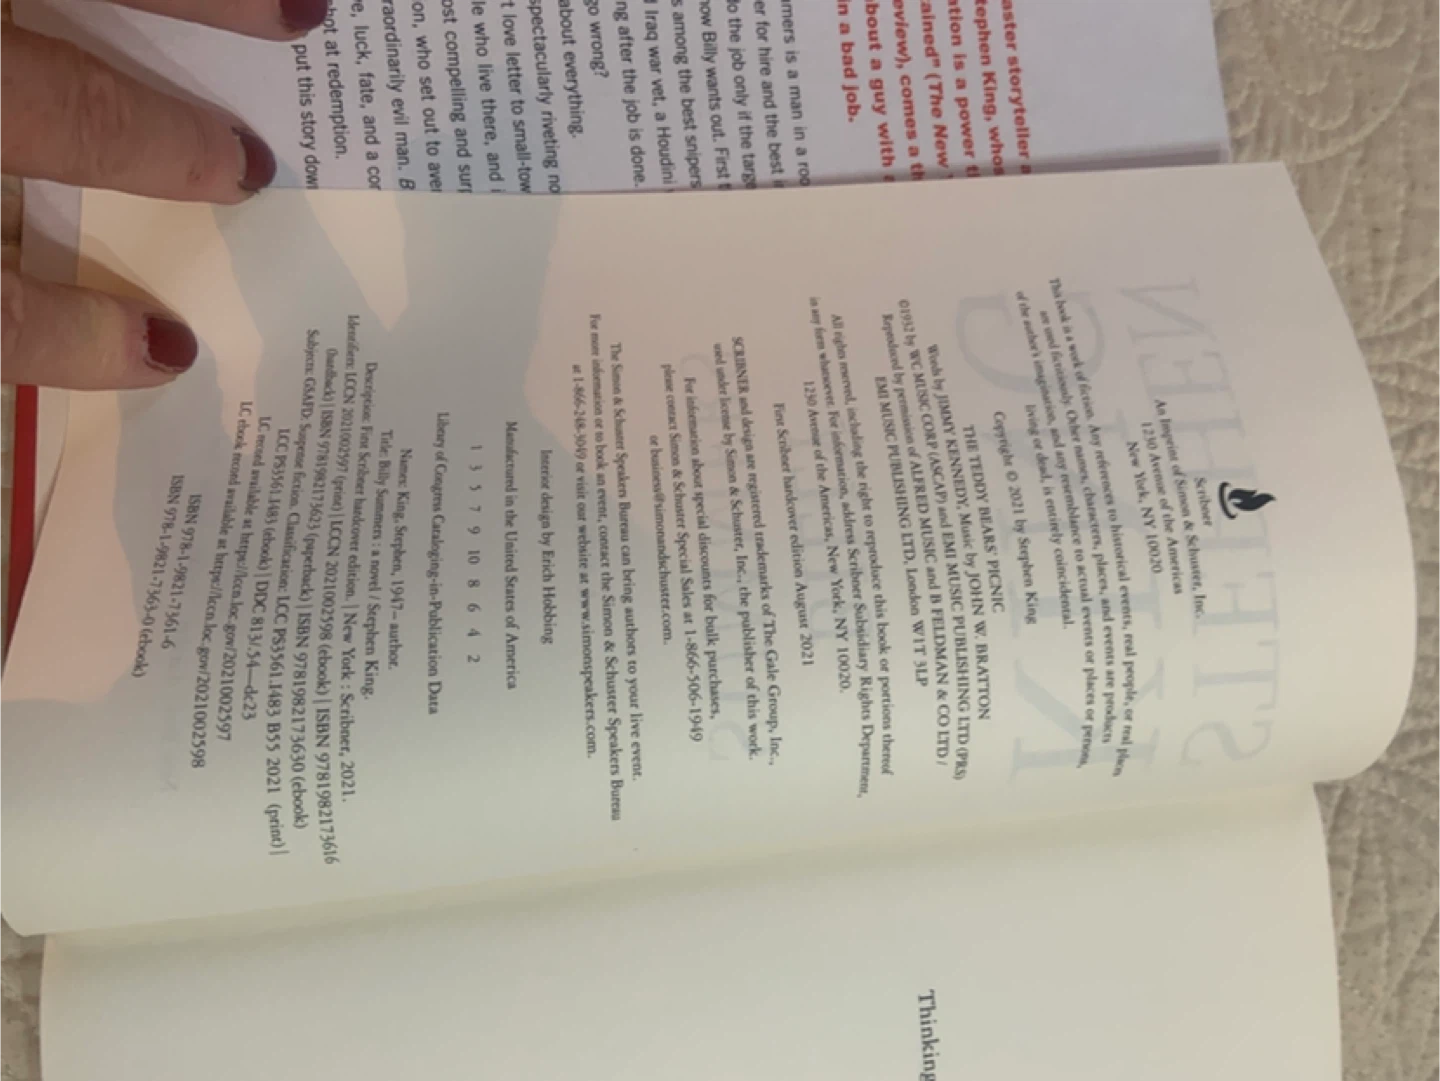 aster storyteller
tephen King, whos
ation is a power
ained" (The New
eview), comes a th
about a guy with a
in a bad job.
mers is a man in a roo
er for hire and the best
do the job only if the targe
now Billy wants out. First
s among the best snipers
Iraq war vet, a Houdini
ng after the job is done.
go wrong?
about everything.
spectacularly riveting no
t love letter to small-tow
le who live there, and
ost compelling and surp
on, who set out to aver
raordinarily evil man. B
e, luck, fate, and a cor
hot at redemption.
put this story down
STEPHEN
KING
Scribner
An Imprint of Simon & Schuster, Inc.
1230 Avenue of the Americas
New York, NY 10020
This book is a work of fiction. Any references to historical events, real people, or real places
are used fictitiously. Other names, characters, places, and events are products
of the author's imagination, and any resemblance to actual events or places or persons,
living or dead, is entirely coincidental.
Copyright © 2021 by Stephen King
THE TEDDY BEARS' PICNIC
Words by JIMMY KENNEDY, Music by JOHN W. BRATTON
©1932 by WC MUSIC CORP (ASCAP) and EMI MUSIC PUBLISHING LTD (PRS)
Reproduced by permission of ALFRED MUSIC and B FELDMAN & CO LTD /
EMI MUSIC PUBLISHING LTD, London W1T 3LP
All rights reserved, including the right to reproduce this book or portions thereof
in any form whatsoever. For information, address Scribner Subsidiary Rights Department,
1230 Avenue of the Americas, New York, NY 10020.
First Scribner hardcover edition August 2021
SCRIBNER and design are registered trademarks of The Gale Group, Inc.,
used under license by Simon & Schuster, Inc., the publisher of this work.
For information about special discounts for bulk purchases,
please contact Simon & Schuster Special Sales at 1-866-506-1949
or business@simonandschuster.com.
The Simon & Schuster Speakers Bureau can bring authors to your live event.
For more information or to book an event, contact the Simon & Schuster Speakers Bureau
at 1-866-248-3049 or visit our website at www.simonspeakers.com.
Interior design by Erich Hobbing
Manufactured in the United States of America
1 3 5 7 9 10 8 6 4 2
Library of Congress Cataloging-in-Publication Data
Names: King, Stephen, 1947– author.
Title: Billy Summers : a novel / Stephen King.
Description: First Scribner hardcover edition. | New York : Scribner, 2021.
Identifiers: LCCN 2021002597 (print) | LCCN 2021002598 (ebook) | ISBN 9781982173616
(hardback) | ISBN 9781982173623 (paperback) | ISBN 9781982173630 (ebook)
Subjects: GSAFD: Suspense fiction. Classification: LCC PS3561.I483 B55 2021 (print) |
LCC PS3561.I483 (ebook) | DDC 813/.54—dc23
LC record available at https://lccn.loc.gov/2021002597
LC ebook record available at https://lccn.loc.gov/2021002598
ISBN 978-1-9821-7361-6
ISBN 978-1-9821-7363-0 (ebook)
Thinking